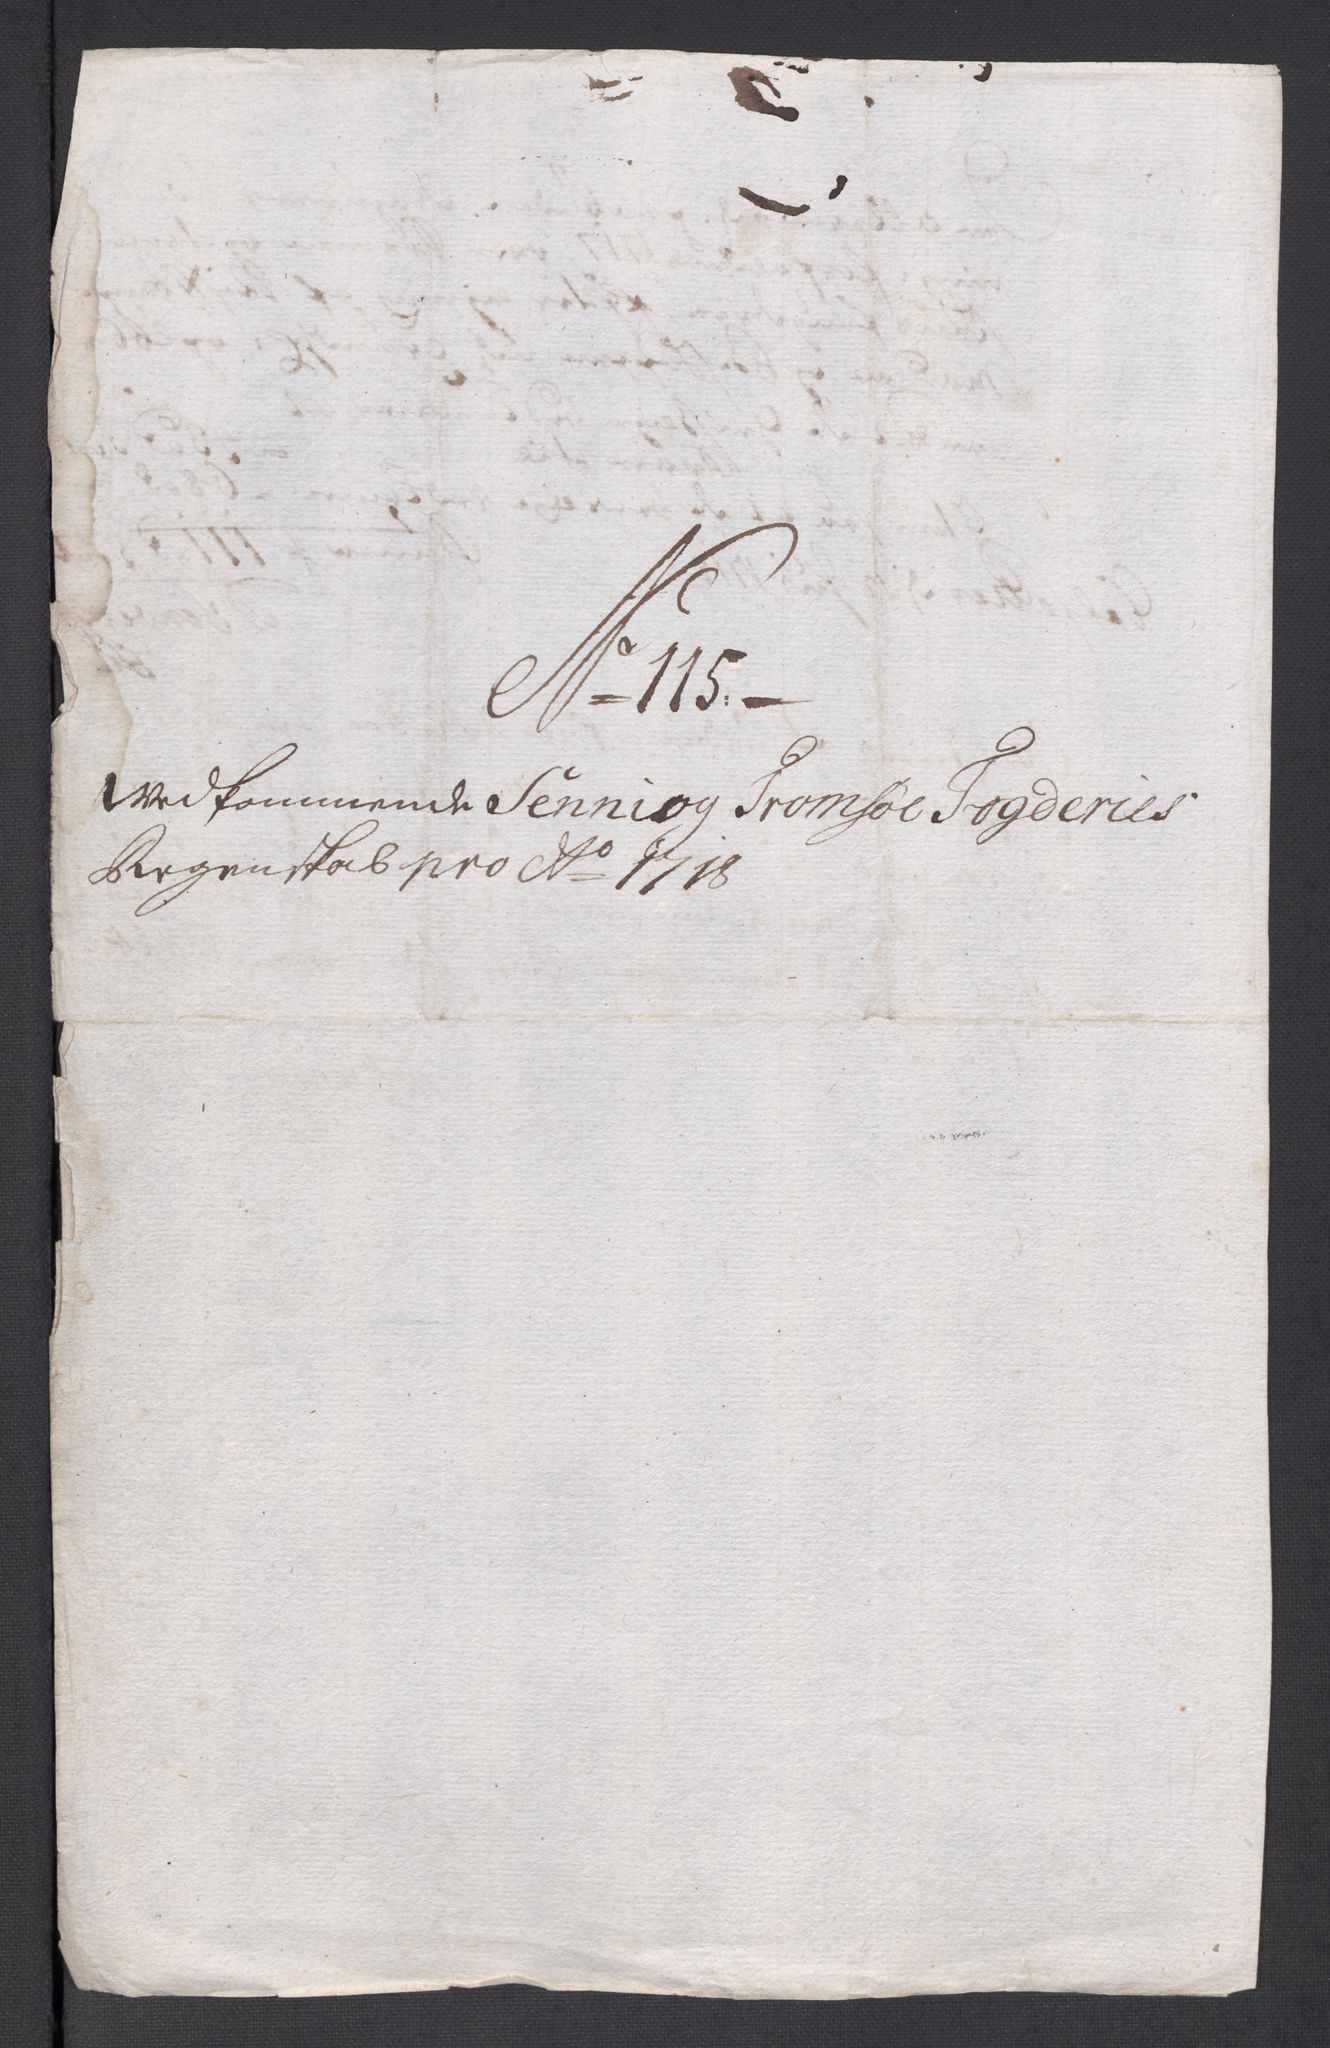 No 115.
Vedkommende Senni og Tromsöe Fogderies
Regenskab pro Ao 1718